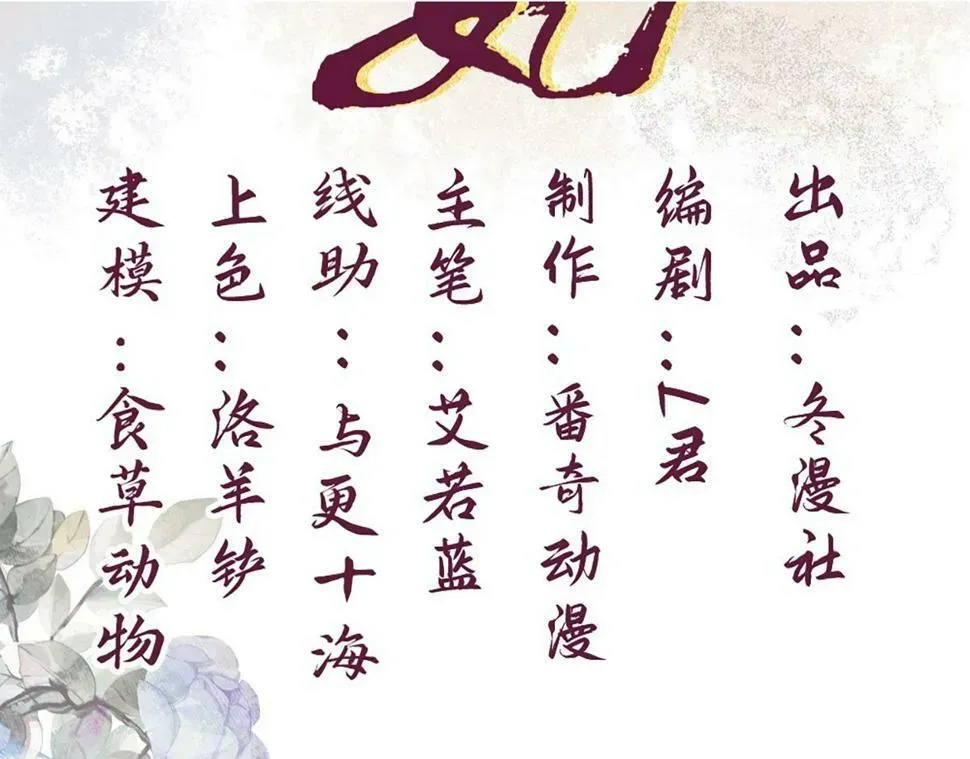 出品：冬漫社
编剧：7君
制作：番奇动漫
主笔：艾若蓝
线助：与更十海
上色：洛羊铲
建模：食草动物